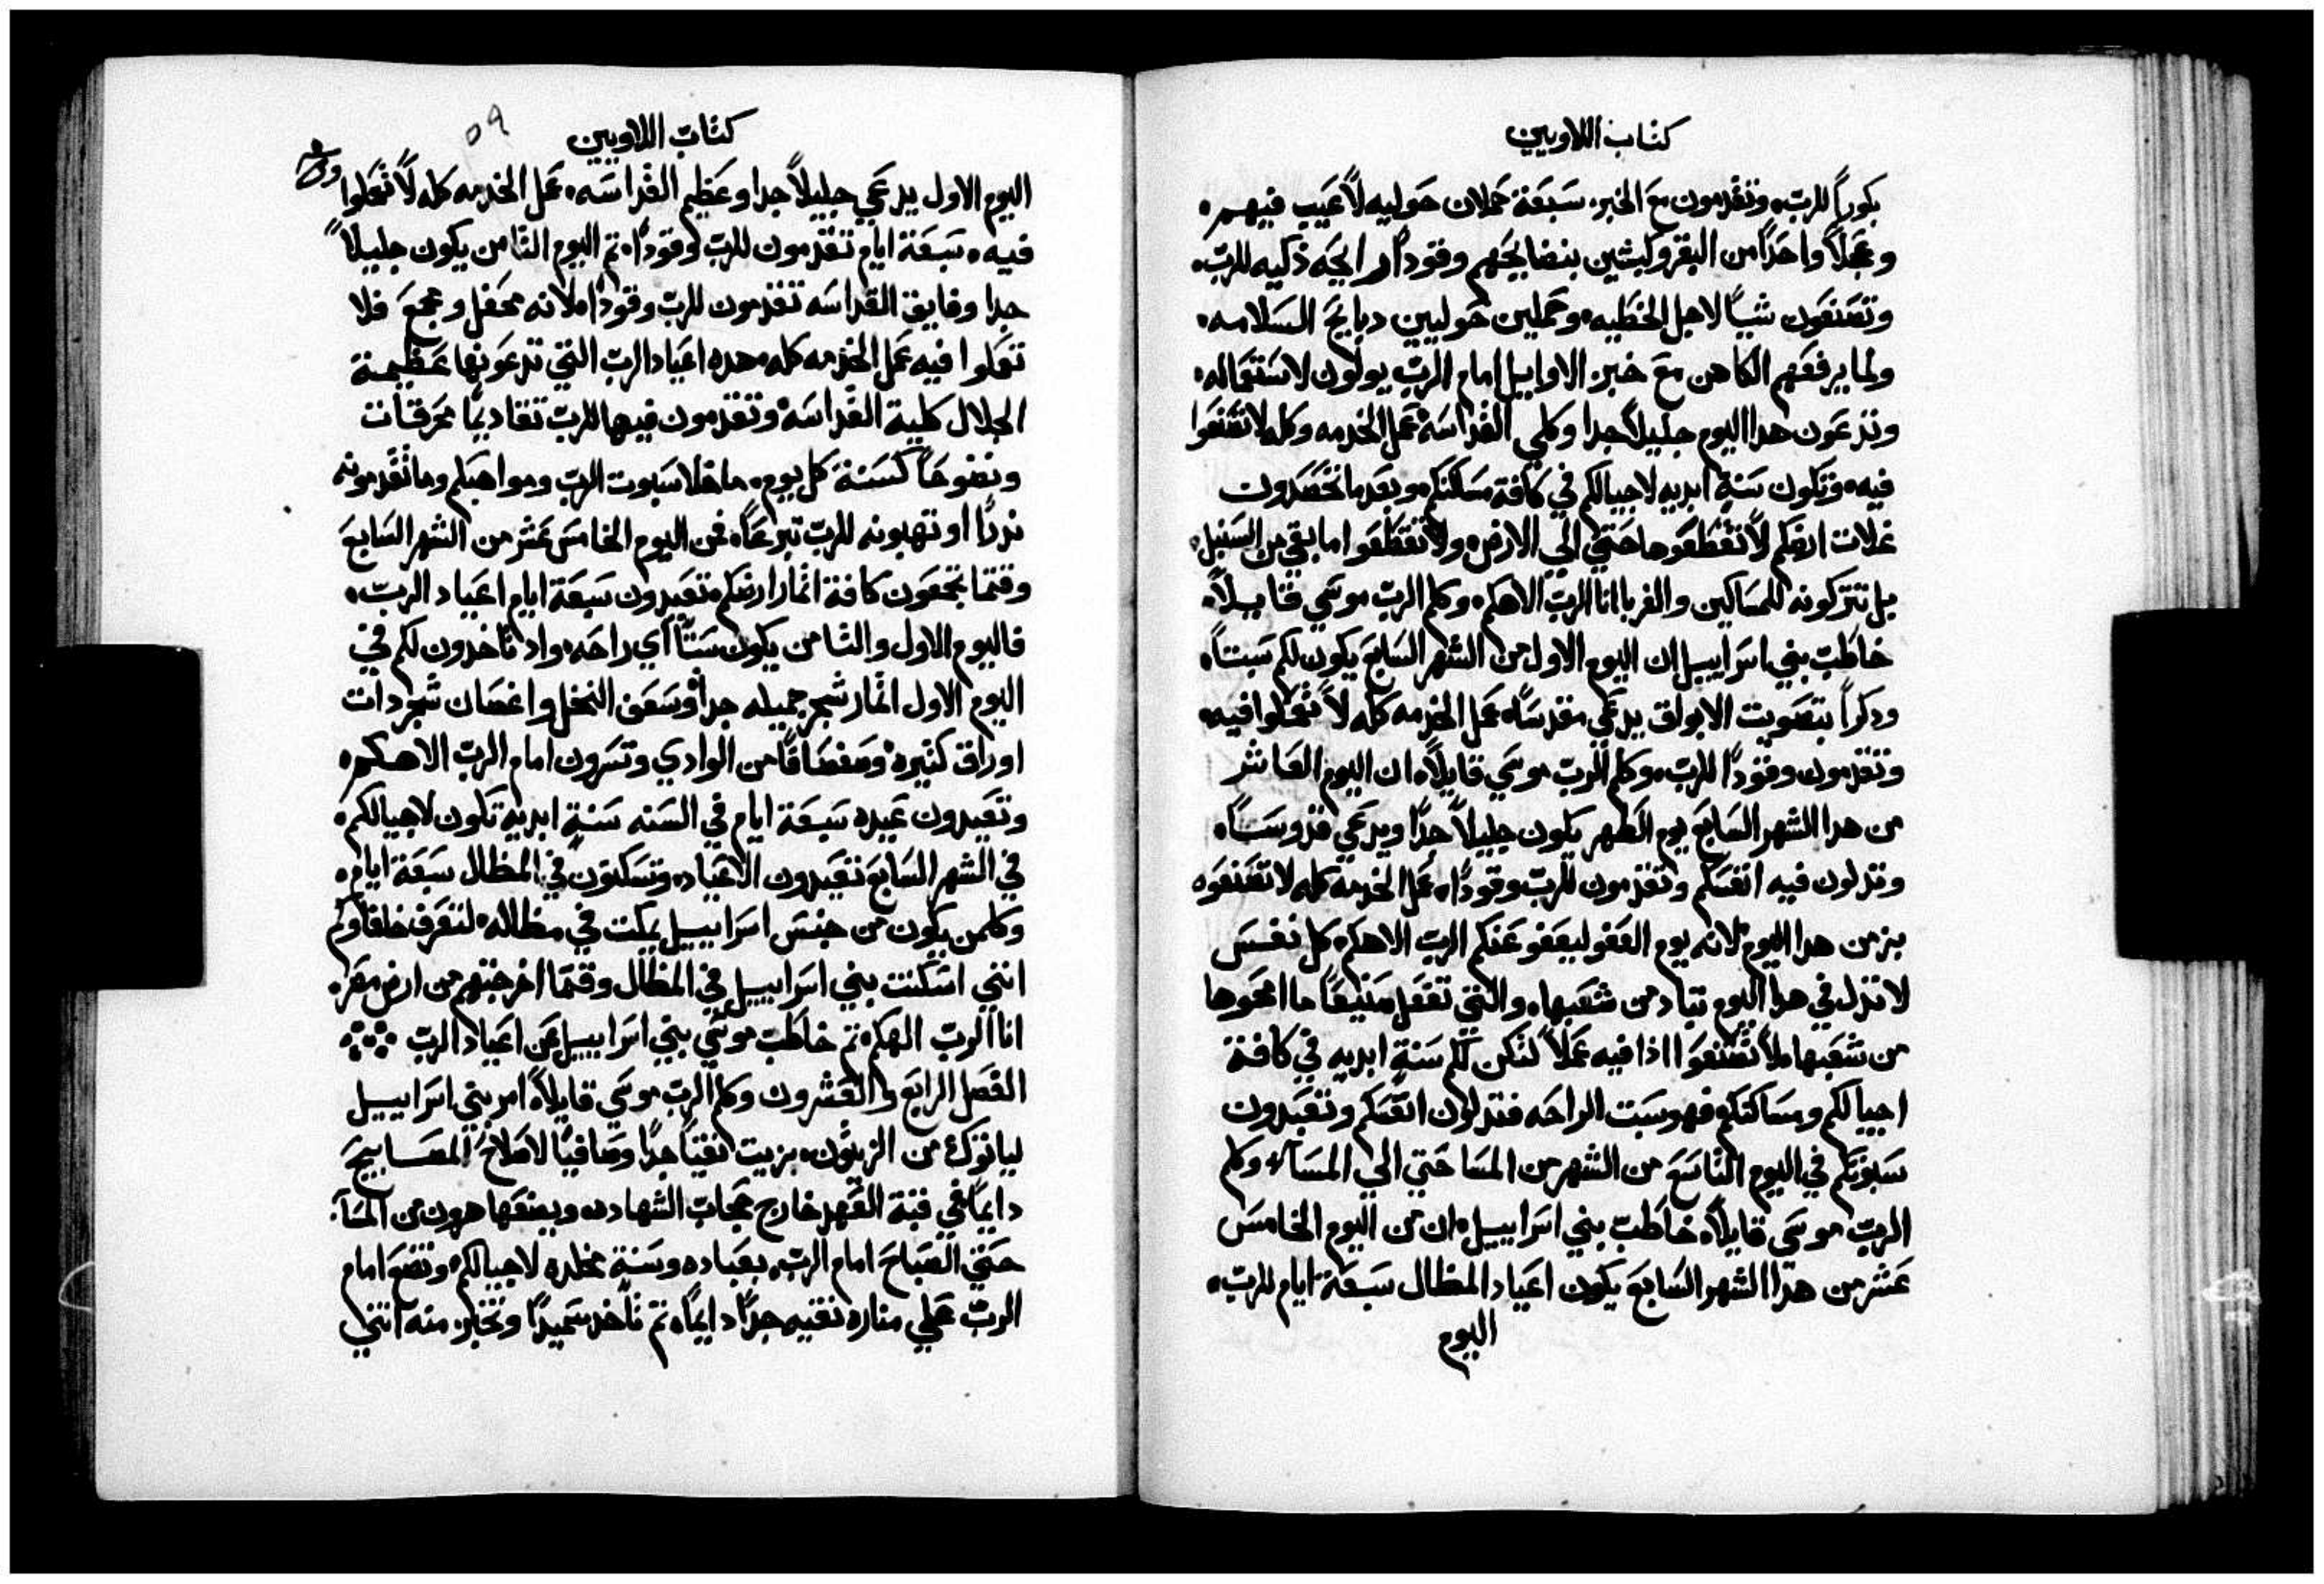 كتاب اللاويين
بكوراً للرب، وتقدمون مع الخبز، سبعة حملان حوليه لا عيب فيهم،
وعجلاً واحداً من البقر وكبشين بنضايحهم وقوداً رايحه ذكيه للرب،
وتصنعون تيساً لاجل الخطيه، وحملين حوليين دبايح السلامه،
ولما يرفعهم الكاهن مع خبز الاوايل امام الرب يولون لاستعماله،
وتدعون هدا اليوم جليلاً جدا وكلي القداسه عمل الخدمه وكله لا تصنعوا
فيه، وتكون سنةٍ ابديه لاجيالكم في كافة مسكنكم، وبعد ما تحصدون
غلات ارضكم لا تقطعوها حتي الي الارض، ولا تقطعوا ما بقي من السنبل،
بل تتركونه للمساكين والغربا انا الرب الاهكم، وكلم الرب موسي قايلاً،
خاطب بني اسراييل ان اليوم الاول من الشهر السابع يكون لكم سبتاً،
ودكراً بتصويت الابواق يدعي مقدساً، عمل الخدمه كله لا تعملوا فيه،
وتقدمون وقوداً للرب، وكلم الرب موسي قايلاً، ان اليوم العاشر
من هدا الشهر السابع يوم الطهر يكون جليلاً جداً ويدعي قدوساً،
وتدلون فيه انفسكم وتقدمون للرب وقوداً، عمل الخدمه كله لا تصنعوه
بزمن هدا اليوم لانه يوم العفو ليعفو عنكم الرب الاهكم، كل نفس
لا تدل في هدا اليوم تباد من شعبها، والتي تفعل صنيعاً ما امحوها
من شعبها، ملا تصنعوا ادا فيه عملاً لتكن لكم سنةٍ ابديه في كافة
اجيالكم ومساكنكم، فهو سبت الراحه فتدلون انفسكم وتعيدون
سبوتكم في اليوم التاسع من الشهر من المسا حتي الي المسآء، وكلم
الرب موسي قايلاً، خاطب بني اسراييل، ان من اليوم الخامس
عشر من هدا الشهر السابع يكون اعياد المظال سبعة ايام للرب،
اليوم
كتاب اللاويين
٥٩
اليوم الاول يدعي جليلاً جدا وعظيم القداسه، عمل الخدمه كله لا تعملوا
فيه، سبعة ايام تقدمون للرب وقوداً، تم اليوم التامن يكون جليلاً
جدا وفايق القداسه تقدمون للرب وقوداً، لانه محفل ومجمع فلا
تعملوا فيه عمل الخدمه كله، هده اعياد الرب التي تدعونها عظيمة
الجلال كلية القداسه، وتقدمون فيها للرب تقاديماً محرقات
ونضوحاً كسنة كل يوم، ما خلا سبوت الرب ومواهبكم وما تقدمونه
ندراً او تهبونه للرب تبرعاً، فمن اليوم الخامس عشر من الشهر السابع
وقتما تجمعون كافة اثمار ارضكم، تعيدون سبعة ايام اعياد الرب،
فاليوم الاول والتامن يكون سبتاً اي راحه، واد تاخدون لكم في
اليوم الاول اثمار شجر جميله جداً وسعف النخل واغصان شجر دات
اوراق كثيرة، وصفصافاً من الوادي وتسرون امام الرب الاهكم،
وتعيدون عيده سبعة ايام في السنه سنةٍ ابديةٍ تكون لاجيالكم،
في الشهر السابع تعيدون الاعياد، وتسكنون في المظال سبعة ايام،
وكلمن يكون من جنس اسراييل يمكت في مظاله، لتعرف خلفاوكم
انني اسكنت بني اسراييل في المظال وقتما اخرجتهم من ارض مصر،
انا الرب الهكم، تم خاطب موسي بني اسراييل عن اعياد الرب
الفصل الرابع والعشرون وكلم الرب موسي قايلاً، امر بني اسراييل
لياتوك من الزيتون، بزيت نقياً جداً وصافياً لاصلاح المصابيح
دايماً في قبة العهد خارج حجاب الشهاده، ويضعها هرون من المسآ،
حتي الصباح امام الرب، بعباده وسنةٍ مخلده لاجيالكم، وتضع امام
الرب علي مناره نقيه جداً دايماً، تم تاخد سميداً وتخبز منه اتني